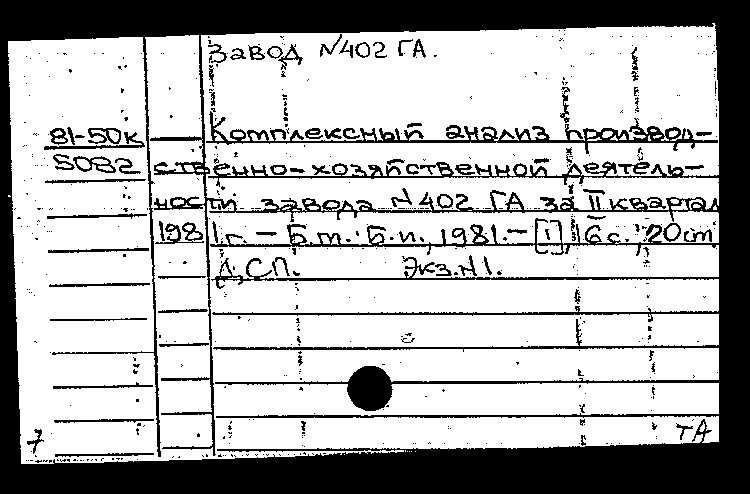 Завод N402 ГА.
81-50к Комплексный анализ производ-
5082 ственно-хозяйственной деятель-
ности завода N402 ГА за II квартал
1981г. - Б.м.: Б.и., 1981. - [1], 16 с.; 20 cm
ДСП. Экз. N1.
7 ТА